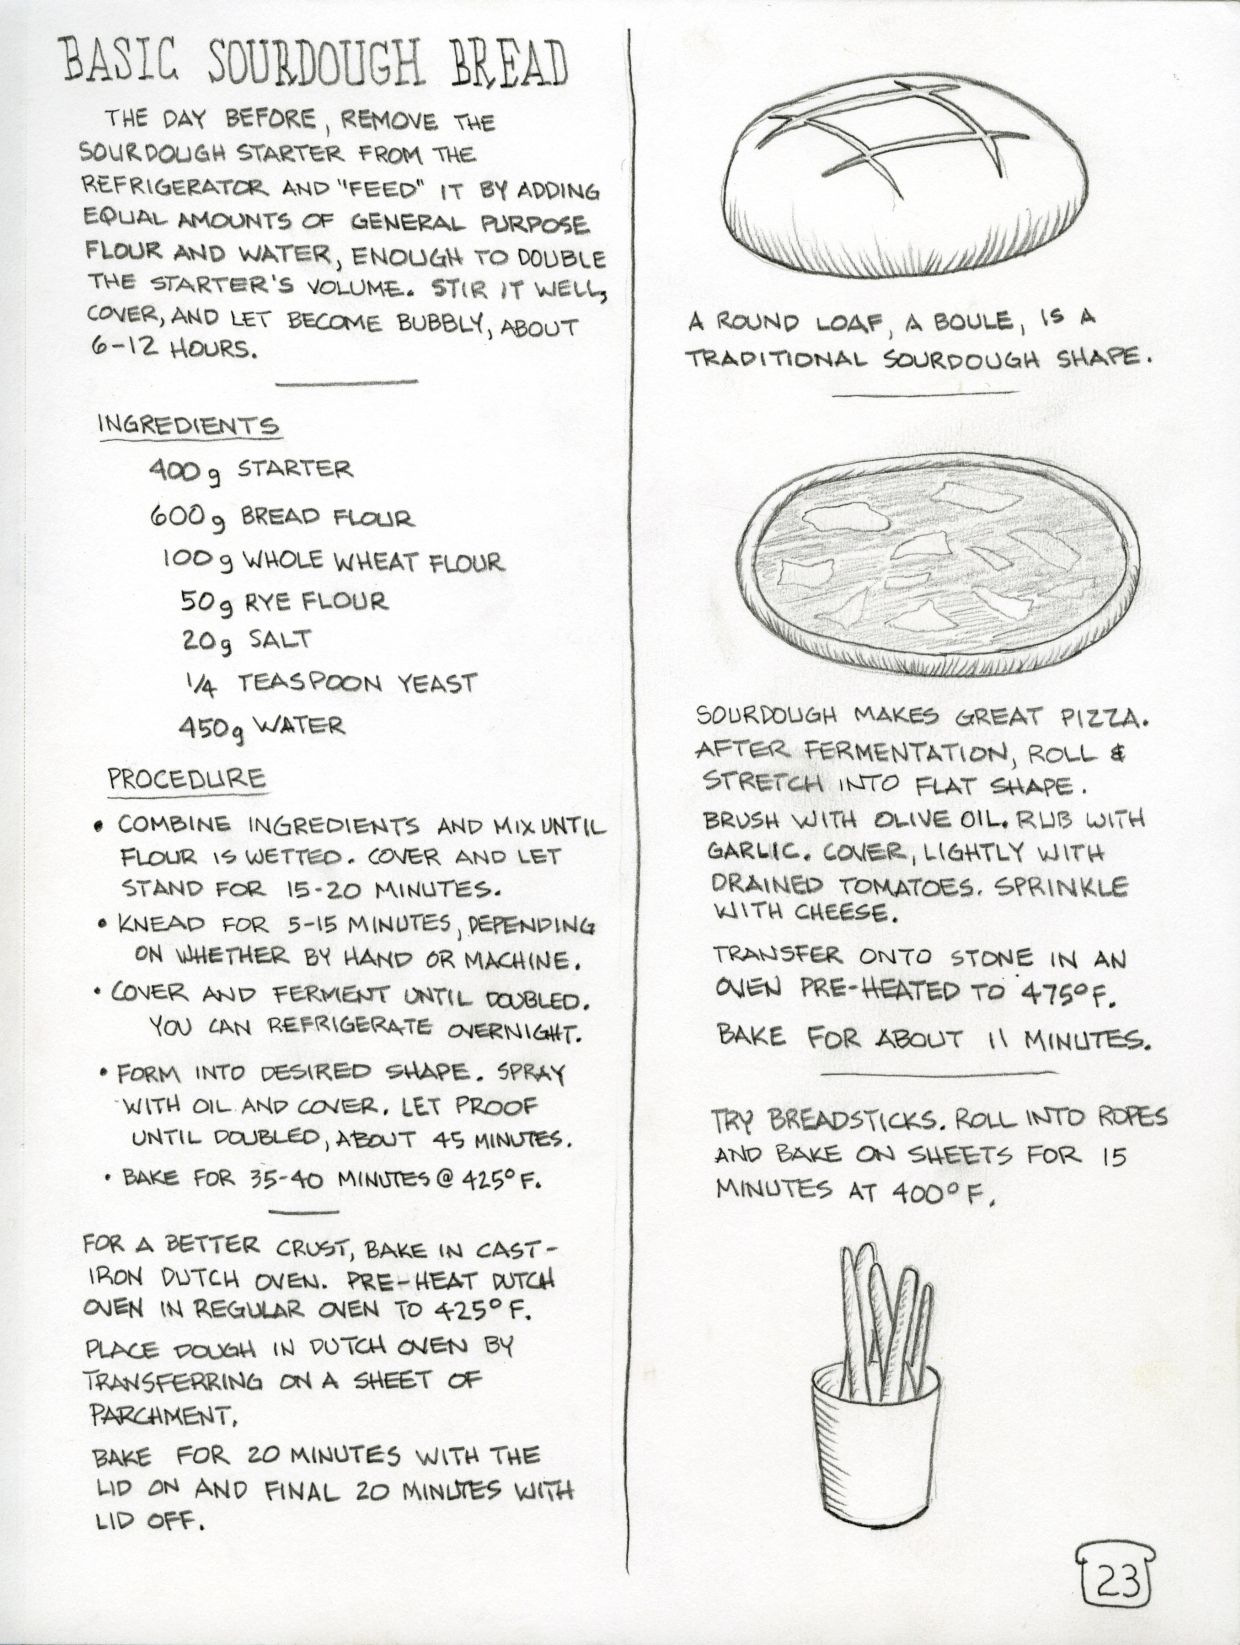 BASIC SOURDOUGH BREAD
THE DAY BEFORE, REMOVE THE
SOURDOUGH STARTER FROM THE
REFRIGERATOR AND "FEED" IT BY ADDING
EQUAL AMOUNTS OF GENERAL PURPOSE
FLOUR AND WATER, ENOUGH TO DOUBLE
THE STARTER'S VOLUME. STIR IT WELL,
COVER, AND LET BECOME BUBBLY, ABOUT
6-12 HOURS.
INGREDIENTS
400g STARTER
600g BREAD FLOUR
100g WHOLE WHEAT FLOUR
50g RYE FLOUR
20g SALT
1/4 TEASPOON YEAST
450g WATER
PROCEDURE
• COMBINE INGREDIENTS AND MIX UNTIL
FLOUR IS WETTED. COVER AND LET
STAND FOR 15-20 MINUTES.
• KNEAD FOR 5-15 MINUTES, DEPENDING
ON WHETHER BY HAND OR MACHINE.
• COVER AND FERMENT UNTIL DOUBLED.
YOU CAN REFRIGERATE OVERNIGHT.
• FORM INTO DESIRED SHAPE. SPRAY
WITH OIL AND COVER. LET PROOF
UNTIL DOUBLED, ABOUT 45 MINUTES.
• BAKE FOR 35-40 MINUTES @ 425°F.
FOR A BETTER CRUST, BAKE IN CAST-
IRON DUTCH OVEN. PRE-HEAT DUTCH
OVEN IN REGULAR OVEN TO 425°F.
PLACE DOUGH IN DUTCH OVEN BY
TRANSFERRING ON A SHEET OF
PARCHMENT.
BAKE FOR 20 MINUTES WITH THE
LID ON AND FINAL 20 MINUTES WITH
LID OFF.
A ROUND LOAF, A BOULE, IS A
TRADITIONAL SOURDOUGH SHAPE.
SOURDOUGH MAKES GREAT PIZZA.
AFTER FERMENTATION, ROLL &
STRETCH INTO FLAT SHAPE.
BRUSH WITH OLIVE OIL. RUB WITH
GARLIC. COVER, LIGHTLY WITH
DRAINED TOMATOES. SPRINKLE
WITH CHEESE.
TRANSFER ONTO STONE IN AN
OVEN PRE-HEATED TO 475°F.
BAKE FOR ABOUT 11 MINUTES.
TRY BREADSTICKS. ROLL INTO ROPES
AND BAKE ON SHEETS FOR 15
MINUTES AT 400°F.
23